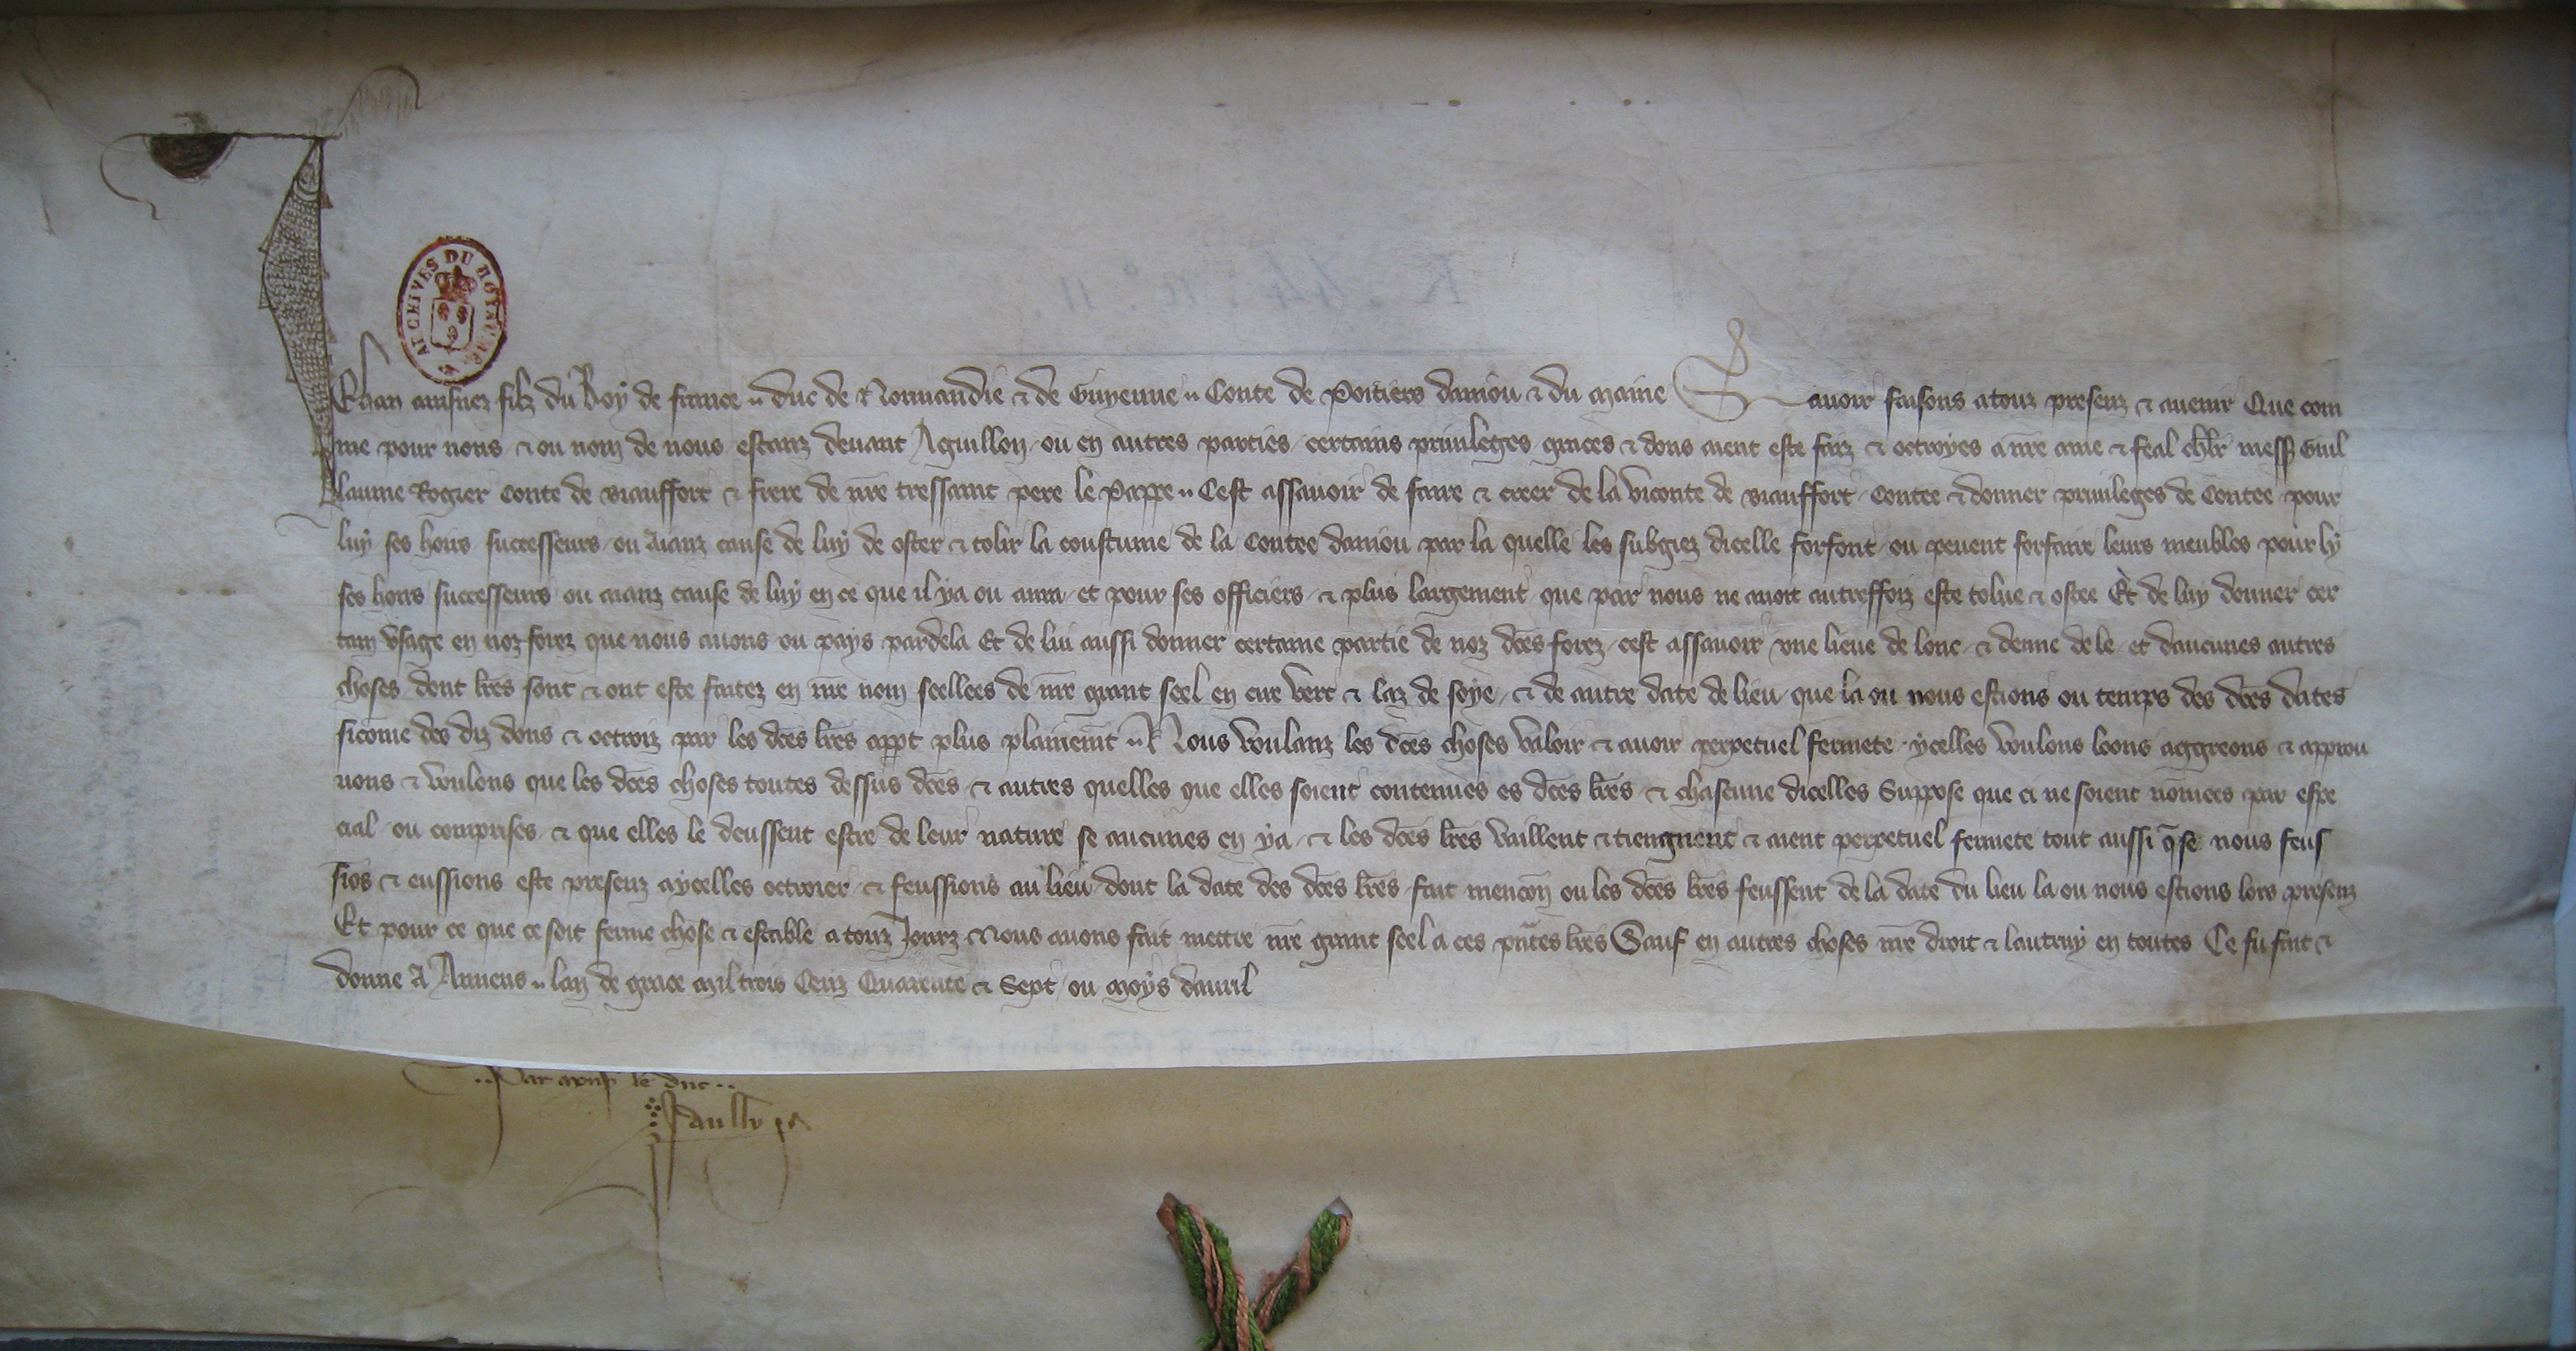 ARCHIVES DU ROYAUME
Jehan ainsnez filz du Roy de france duc de Normandie & de Guyenne Conte de Poitiers daniou & du Maine Sauoir faisons a touz presenz & auenir Que com
me pour nous & ou nom de nous estanz deuant Aguillon ou en autres parties certains priuileges graces & dons aient este faiz & octroyes a nre ame & feal chlr mess Guil
laume Rogier Conte de Biauffort & frere de nre tressaint pere le Pappe Cest assauoir de faire & creer de la viconte de Biauffort Contee & donner priuileges de Contee pour
luy ses hoirs successeurs ou aianz cause de luy de oster & tolir la coustume de la Contee daniou par la quelle les subgiez dicelle forfont ou peuent forfaire leurs meubles pour ly
ses hoirs successeurs ou aianz cause de luy en ce que il ya ou aura et pour ses officiers & plus largement que par nous ne auoit autreffoiz este tolue & ostee Et de luy donner cer
tain vsage en noz forez que nous auons ou pays pardela Et de lui aussi donner certaine partie de noz dces forez cest assauoir vne lieue de lonc & demie de le et daucunes autres
choses dont lres sont & ont este faitez en nre nom seellees de nre grant seel en cire vert & laz de soye & de autre date de lieu que la ou nous estions ou temps des dces dates
sicome des diz dons & octroiz par les dces lres appt plus plainemt Nous voulanz les dces choses valoir & auoir perpetuel fermete ycelles voulons loons aggreons & approu
uons & voulons que les dces choses toutes dessus dces & autres quelles que elles soient contenues es dces lres & chascune dicelles Suppose que ci ne soient nomees par espe
cial ou comprises & que elles le deussent estre de leur nature se aucunes en ya & les dces lres vaillent & tiengnent & aient perpetuel fermete tout aussi q se nous feus
sios & eussions este presenz a ycelles octroier & feussions au lieu dont la date des dces lres fait mencon ou les dces lres feussent de la date du lieu la ou nous estions lors presenz
Et pour ce que ce soit ferme chose & estable a touz Jourz Nous auons fait mettre nre grant seel a ces pntes lres Sauf en autres choses nre droit & lautruy en toutes Ce fu fait &
donne a Amiens lan de grace mil trois Cenz Quarente & Sept ou moys dauril
Par mons le duc